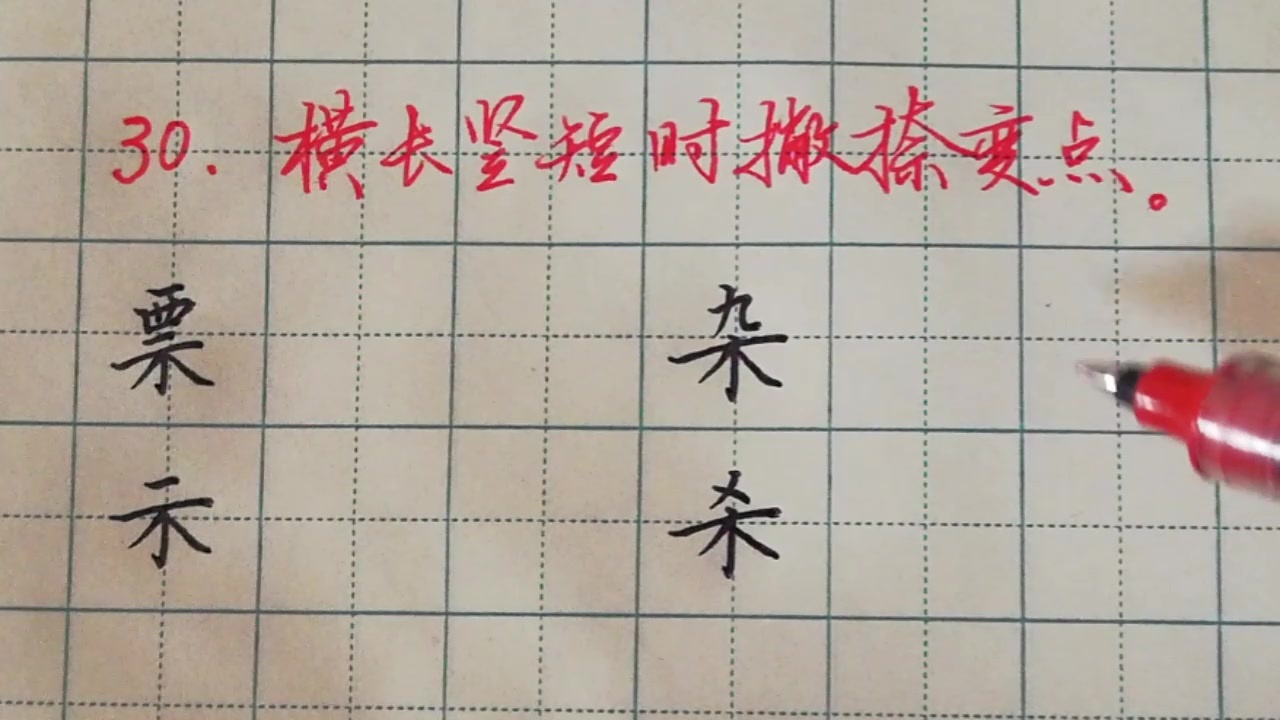 30. 横长竖短时撇捺变点。
票 杂
示 杀